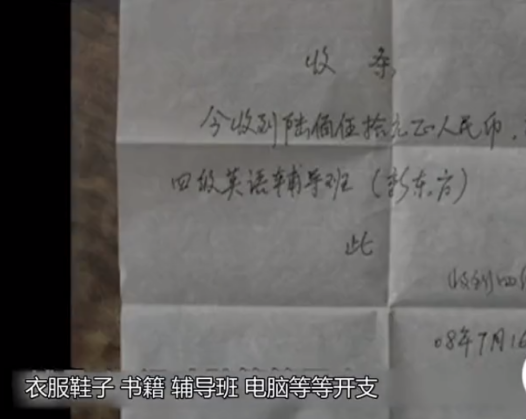 收条
今收到陆佰伍拾元正人民币.
四级英语辅导班（新东方）
此
收到四
08年7月16
衣服鞋子 书籍 辅导班 电脑等等开支